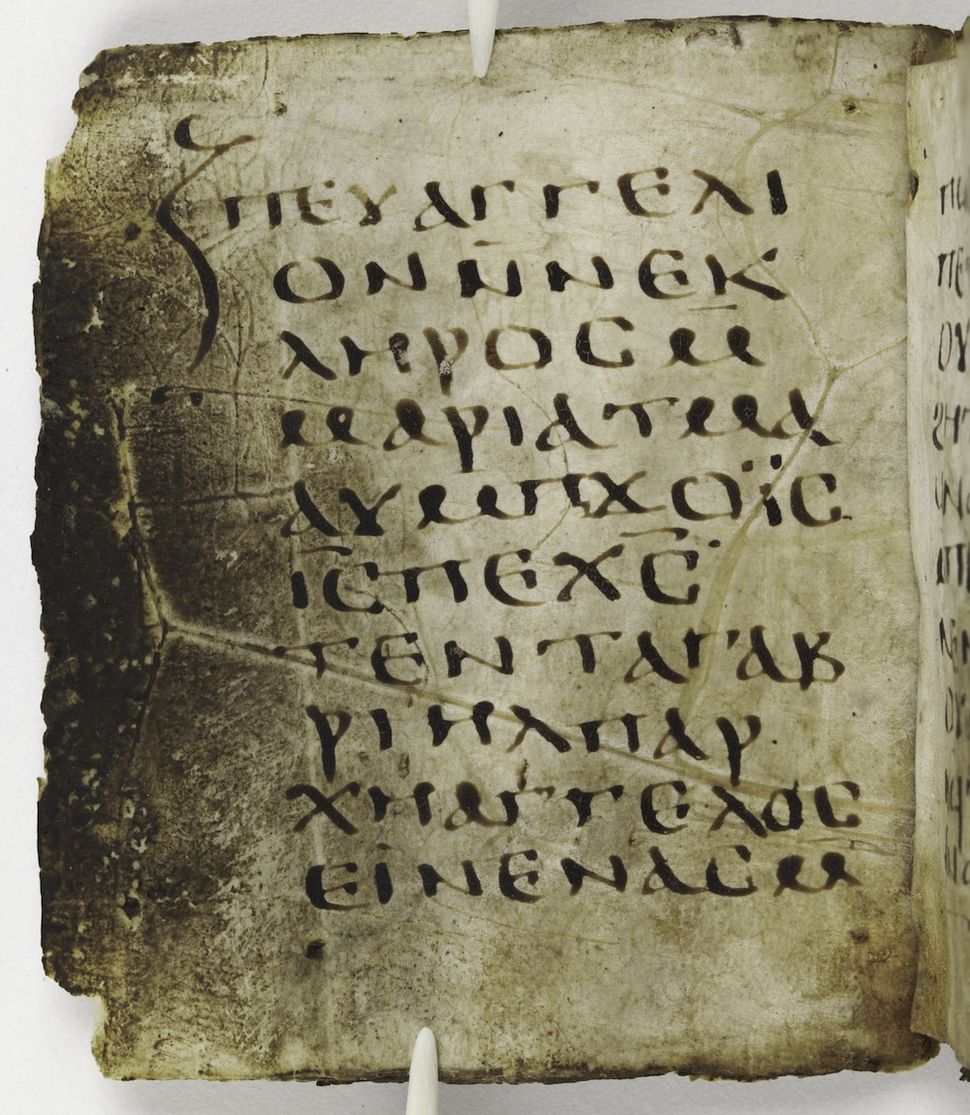 ⲠⲈⲨⲀⲄⲄⲈⲖⲒ
ⲞⲚⲚ̄ⲚⲈⲔ
ⲖⲎⲢⲞⲤⲘ̄
ⲘⲀⲢⲒⲀⲦⲘⲀ
ⲀⲨⲘⲠϪⲞⲒ̈Ⲥ
ⲒⲤ̄ⲠⲈⲬⲤ̄·
ⲦⲈⲚⲦⲀⲄ'ⲀⲂ
ⲢⲒⲎⲖⲠⲀⲢ
ⲬⲎⲀⲄⲄⲈⲖⲞⲤ
ⲈⲒ̇ⲚⲈⲚⲀⲤⲘ